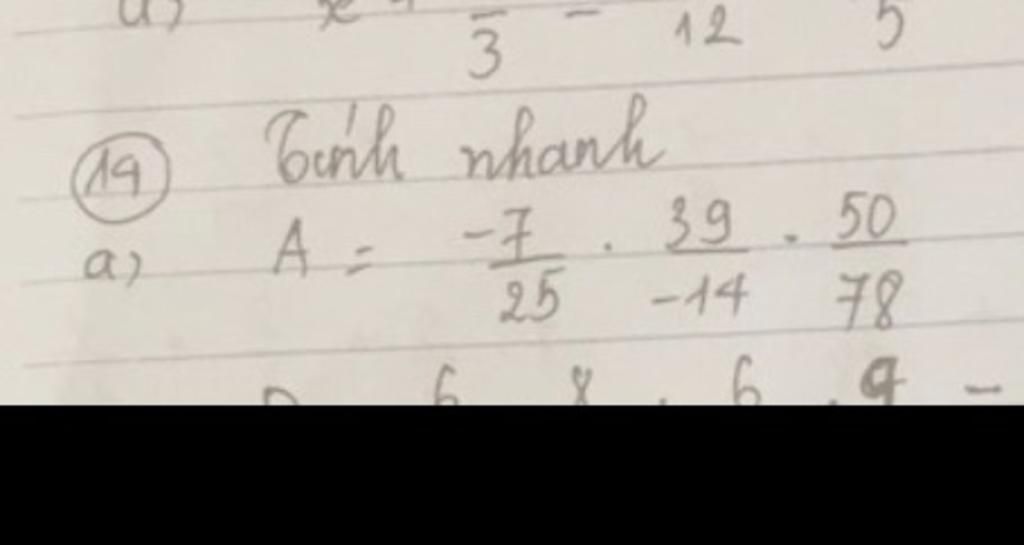 3 - 12 5
19 Tính nhanh
a) A = -7/25 . 39/-14 . 50/78